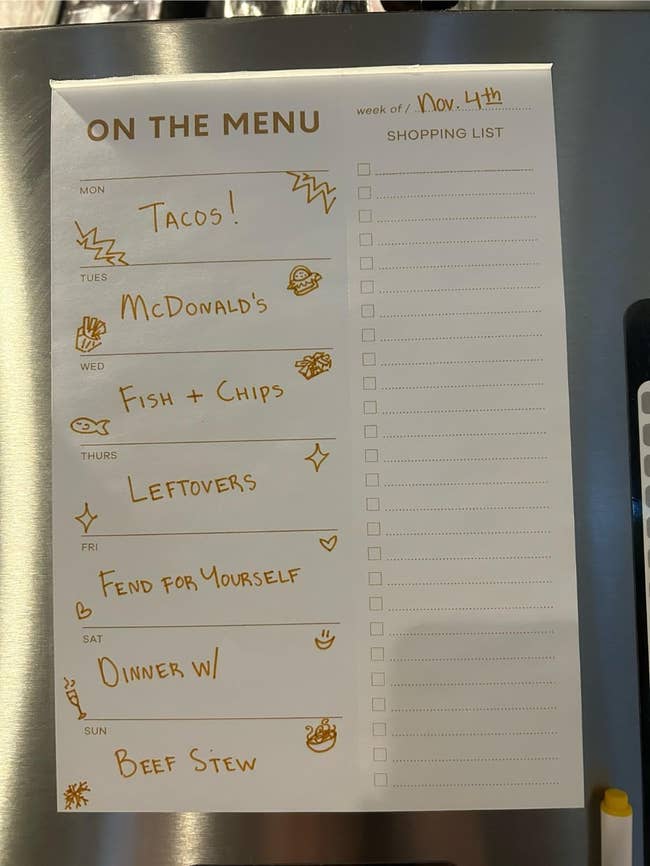 ON THE MENU
week of / Nov. 4th
SHOPPING LIST
MON
TACOS!
TUES
McDONALD'S
WED
FISH + CHIPS
THURS
LEFTOVERS
FRI
FEND FOR YOURSELF
SAT
DINNER W/
SUN
BEEF STEW